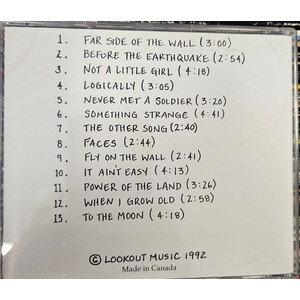 1. FAR SIDE OF THE WALL (3:00)
2. BEFORE THE EARTHQUAKE (2:54)
3. NOT A LITTLE GIRL (4:18)
4. LOGICALLY (3:05)
5. NEVER MET A SOLDIER (3:20)
6. SOMETHING STRANGE (4:41)
7. THE OTHER SONG (2:40)
8. FACES (2:44)
9. FLY ON THE WALL (2:41)
10. IT AIN'T EASY (4:13)
11. POWER OF THE LAND (3:26)
12. WHEN I GROW OLD (2:58)
13. TO THE MOON (4:18)
© LOOKOUT MUSIC 1992
Made in Canada